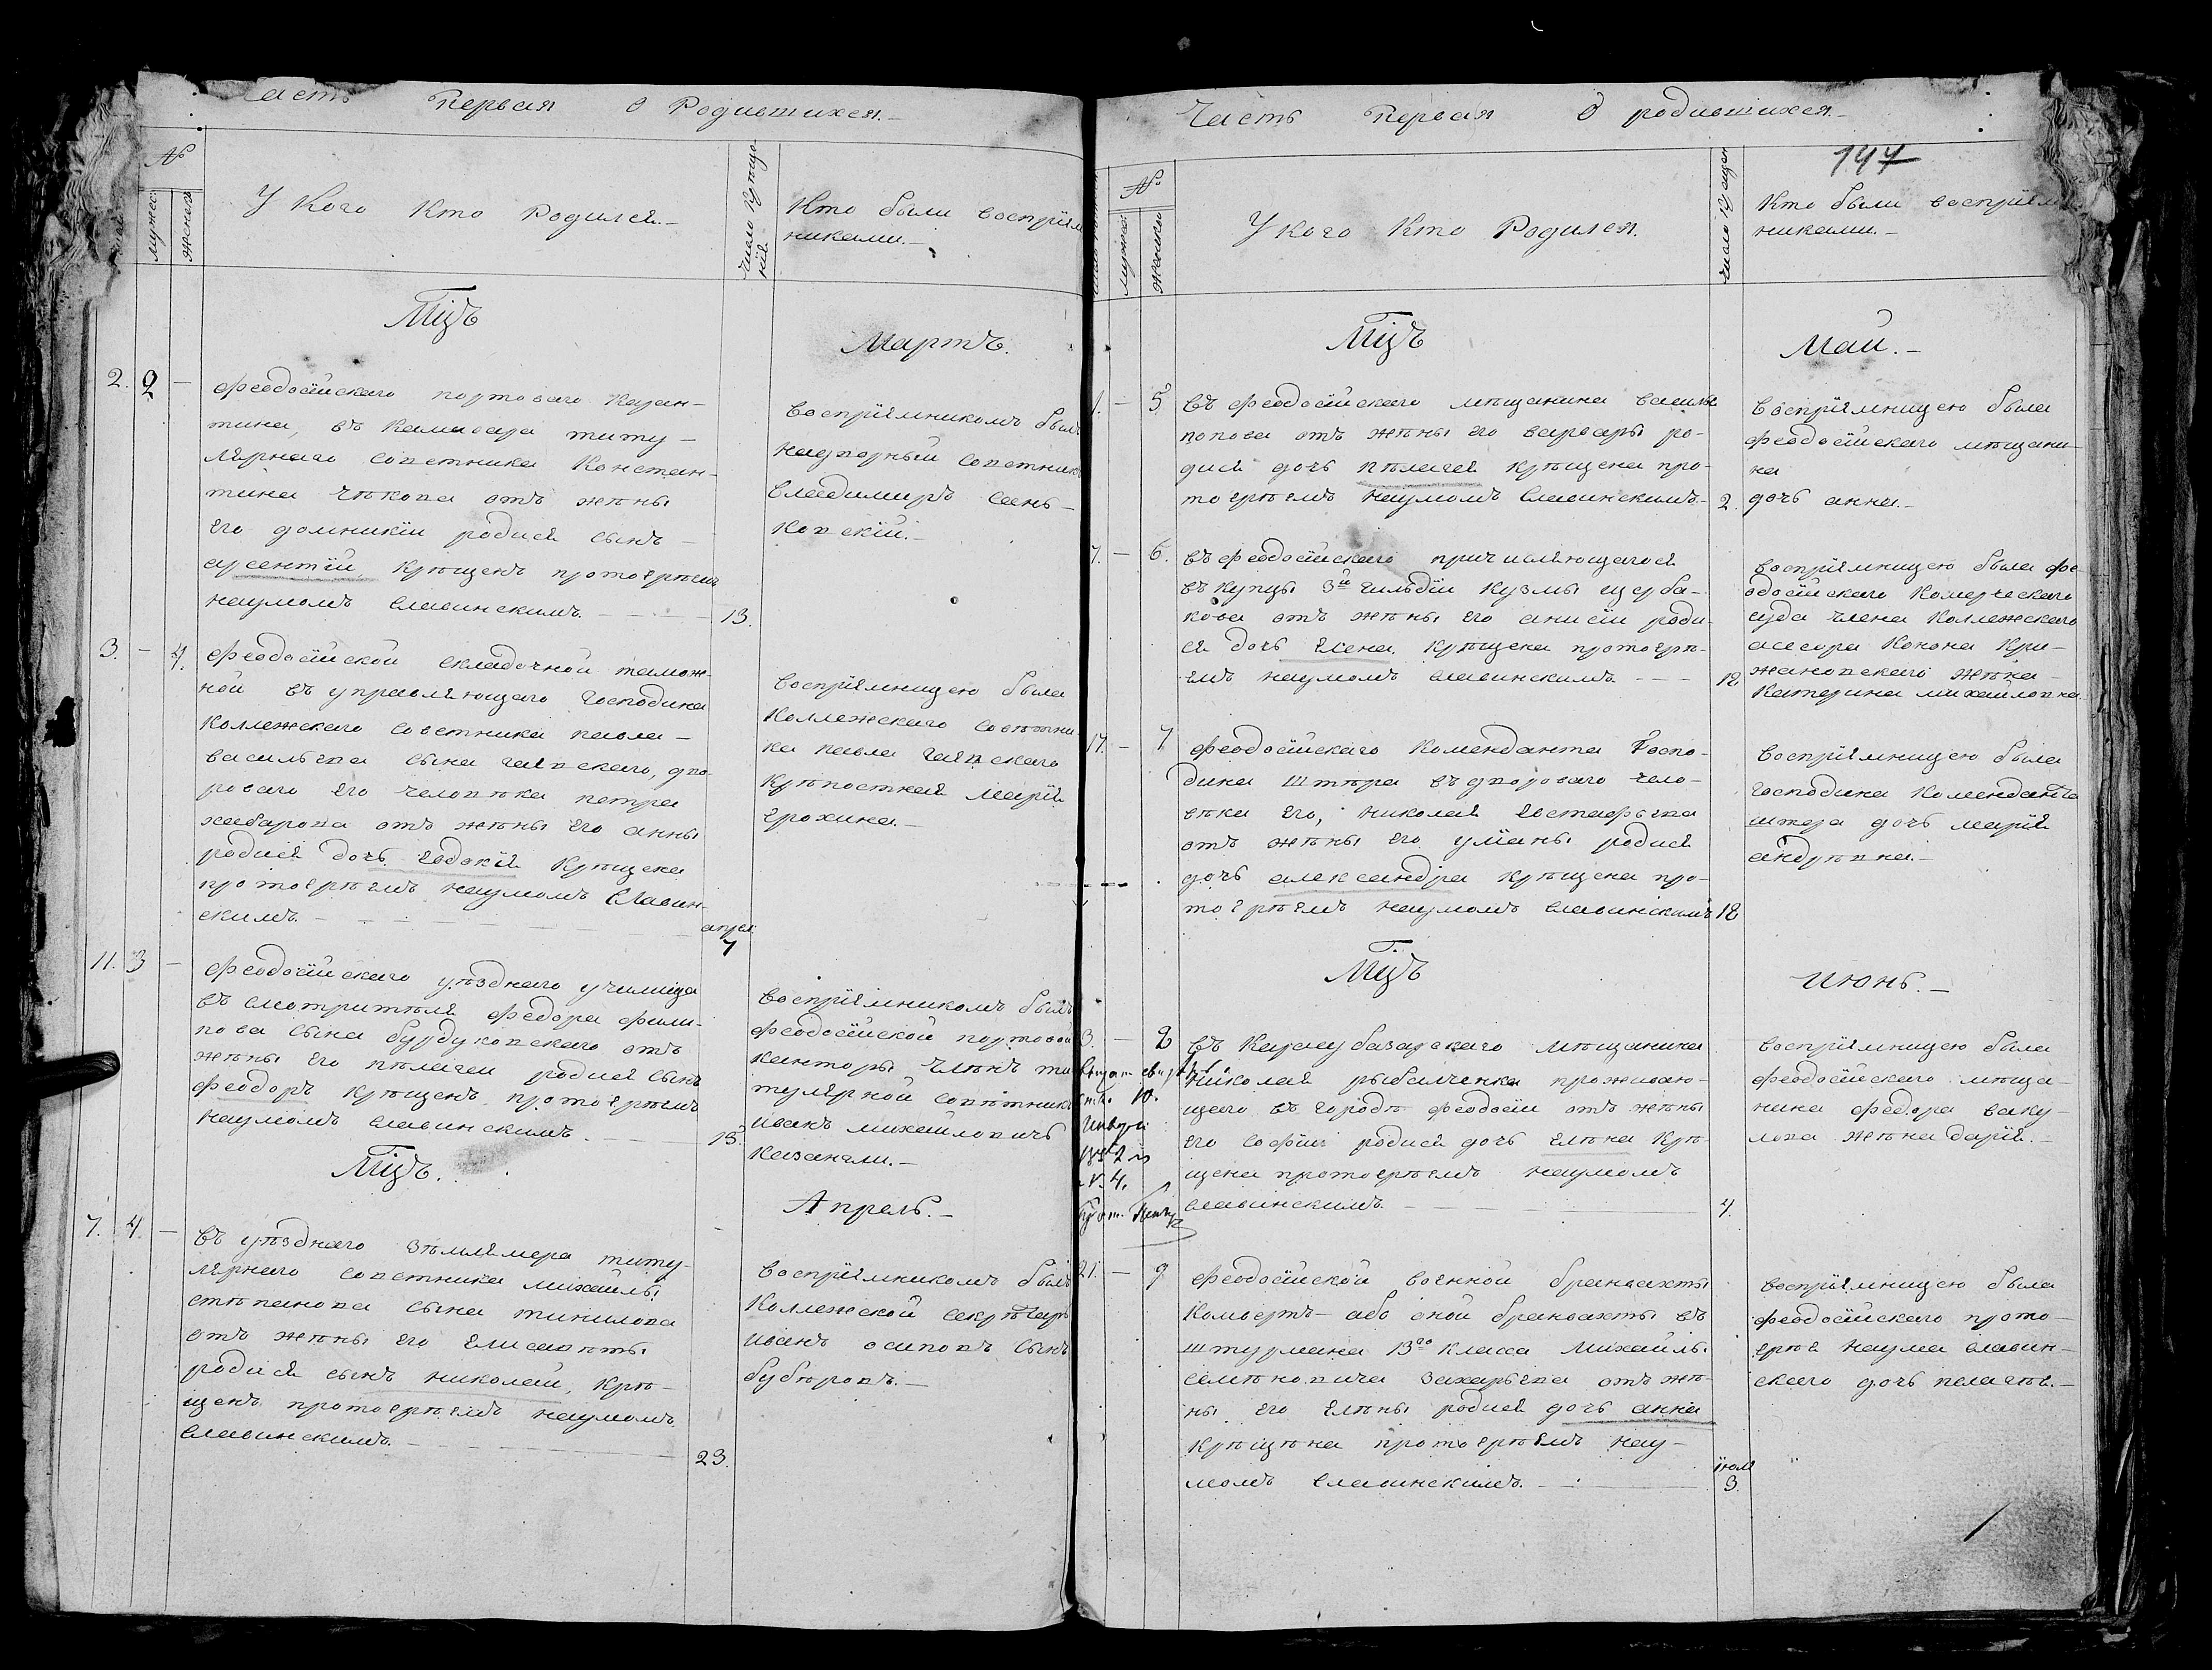 Часть Первая О Родившихся.-
№
мужес:
женск
У Кого Кто Родился.-
число Крещенія
Кто были воспріем
никами.-
Мцъ
Мартъ.
2. 2 -
Феодосійскаго портоваго Каран-
тина, въ Камисара титу-
лярнаго советника Констан-
тина
отъ жѣны
Его домникіи родися сынъ -
арсентій, Крѣщенъ протоерѣемъ
наумомъ славинскимъ.
13.
воспріемникомъ былъ
надворный советникъ
владимиръ сань-
ковскій.-
3. - 4.
Феодосійской складочной таможни
ной въ управляющаго Господина
Коллежскаго советника павла -
васильева сына гаевскаго, дво-
роваго его человѣка петра
хабарова отъ жѣны его анны
родися дочь евдокія Крѣщена
протоерѣемъ наумомъ Славин-
скимъ.-
апрел
7
воспріемницею была
Коллежскаго совѣтни
ка павла гаевскаго
Крѣпостная марія
Ерохина.-
11. 3 -
Феодосійскаго уѣзднаго училища
въ смотритѣля Федора фили-
пова сына бурдуковскаго отъ
жѣны его пѣлагеи родися сынъ
феодоръ Крѣщенъ протоерѣемъ
наумомъ славинскимъ.
15.
воспріемникомъ былъ
феодосійской портовой
канторы члѣнъ ти
тулярной совѣтникъ
иванъ михайловичъ
Казанали.-
Мцъ.
Апрель.-
7. 4. -
въ уѣзднаго зѣмлемера титу-
лярнаго советника михайлы
стѣпанова сына тинилова
отъ жѣны его Елисавѣты
родися сынъ николай, Крѣ-
щенъ протоерѣемъ наумомъ
славинскимъ.
23.
воспріемникомъ былъ
Коллежской секрѣтарь
иванъ осиповъ сынъ
бубѣровъ.-
Часть Первая О родившихся.-
147
№
мужес:
женски
У кого Кто Родился.
число Крещен
Кто были воспріем
никами.-
Мцъ
Май.-
1. - 5.
въ феодосійскаго мѣщанина василья
попова отъ жѣны его варвары ро-
дися дочь пѣлагея Крѣщена про-
тоерѣемъ наумомъ славинскимъ-
2.
воспріемницею была
феодосійскаго мѣщани-
на
дочь анна.-
7. - 6.
въ феодосійскаго причисляющагося
въ купцы 3й гильдіи Кузмы щерба-
кова отъ жѣны его анисіи роди-
ся дочь елена. Крѣщена протоерѣ-
емъ наумомъ славинскимъ. - - -
12
воспріемницею была фе
одосійскаго Комерческаго
суда члена Коллежскаго
асесора Конона Кри-
жановскаго жѣна -
Катерина михайловна.
17. - 7
Феодосійскаго Коменданта Госпо-
дина штѣра въ двороваго чело-
вѣка его, николая Евстафьева
отъ жѣны его уліаны родися
дочь александра Крѣщена про-
тоерѣемъ наумомъ славинскимъ
18
воспріемницею была
Господина Коменданта
штера дочь марія
андрѣвна.-
Мцъ
Июнь.-
3. - 8
въ Карасубазарскаго мѣщанина
николая рыбалченка проживаю-
щаго въ городѣ феодосіи отъ жѣны
его софіи родися дочь елѣна Крѣ-
щена протоерѣемъ наумомъ
славинскимъ.
4.
воспріемницею была
феодосійскаго мѣща-
нина федора ваку-
лова жѣна дарія.-
№ 4.
21. - 9
Феодосійской военной брандвахты
Комверть - або оной брандвахты въ
штурмана 13го Класса Михайлы
семѣновича захарьева отъ жѣ-
ны его елѣны родися дочь анна
Крѣщѣна протоерѣемъ нау-
момъ славинскимъ.
июля
3.
воспріемницею была
феодосійскаго прото-
ерѣя наума славин-
скаго дочь пелагѣя.-